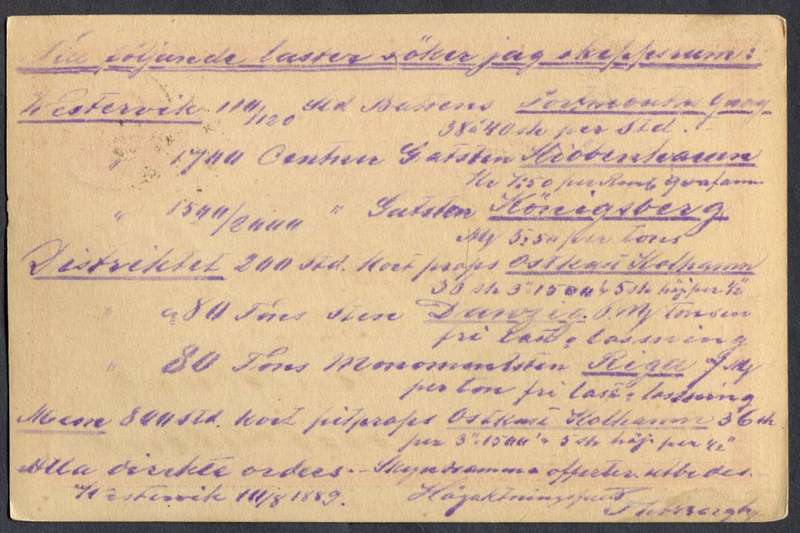 Till följande laster söker jag skeppsrum:
Westervik 110/120 std Battens
38 à 40 sh per Std.
" 1700 Centner Gatsten Kiöbenhamn
Kr 7:50 per
" 1500/2000 " Gatsten Königsberg
Mk 5:50 per tons
Distriktet 200 std. kort props Ostkust Kolhamn
36 sh 3" 1500 & 5 sh höj per ½"
80 Tons sten Danzig. Mk tonnen
fri last & lossning
" 80 Tons Monumentsten Riga Mk
per ton fri last & lossning
800 std. kort pitprops Ostkust Kolhamn 36 sh
per 3" 1500 & 5 sh höj per ½"
Alla direkte orders. Skyndsamma offerter utbedes.
Westervik 10/8 1889. Högaktningsfullt